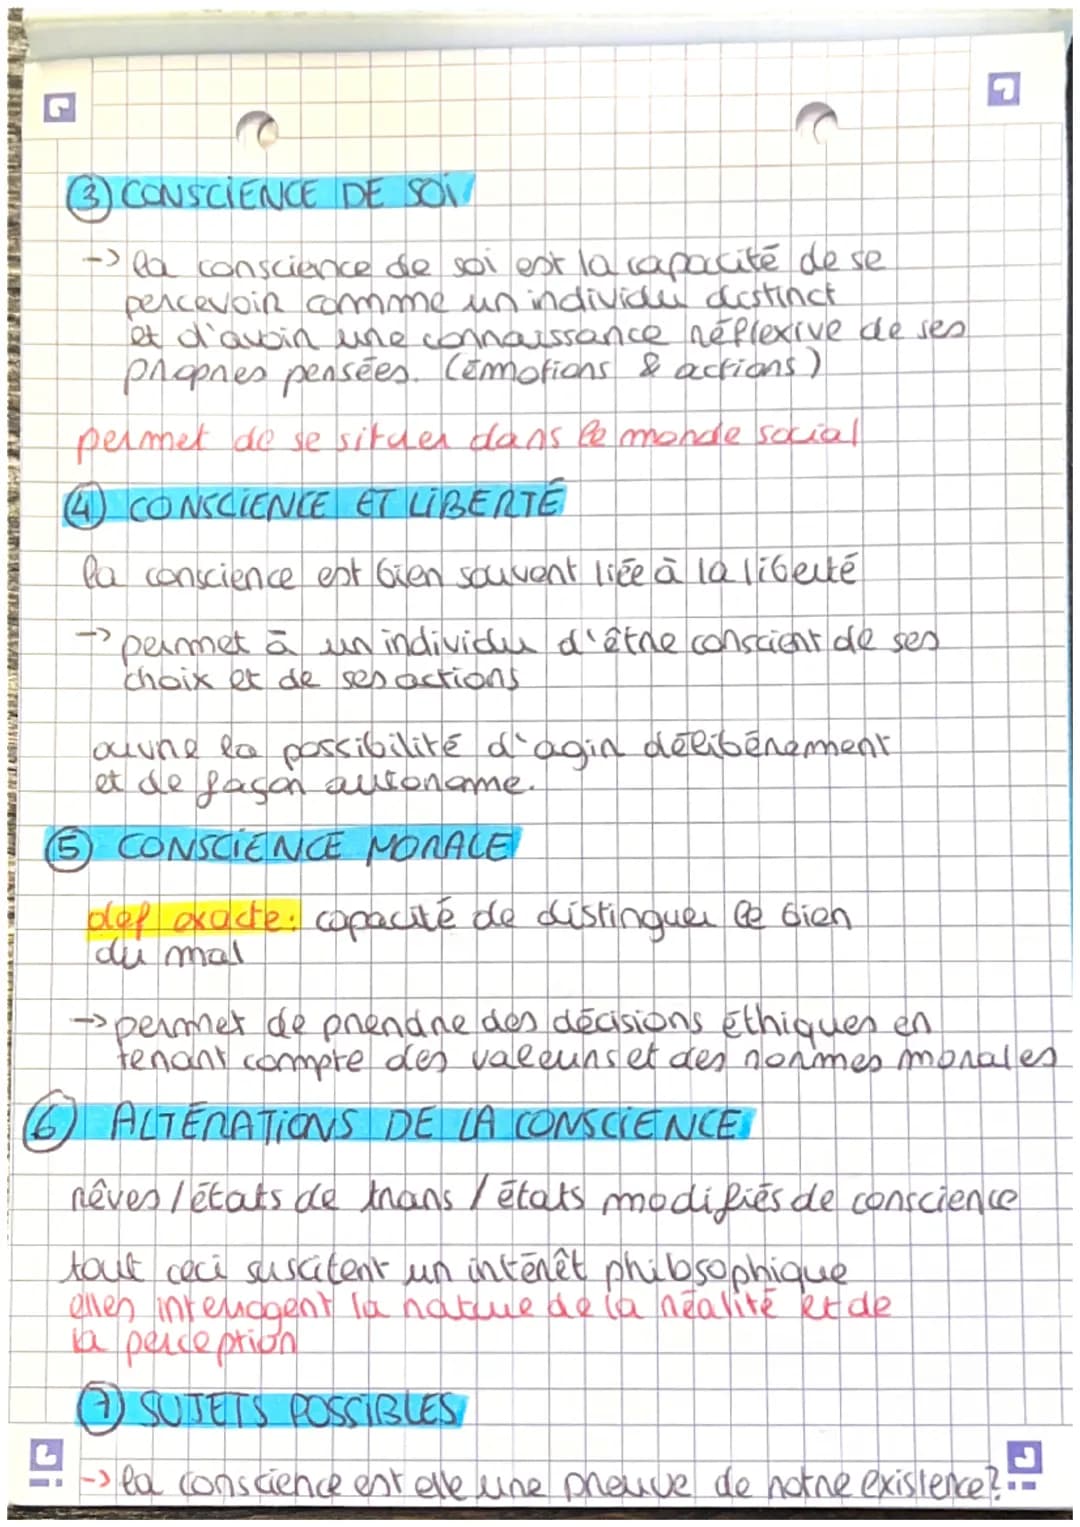 ③ CONSCIENCE DE SOI
-> la conscience de soi est la capacité de se
percevoir comme un individu distinct
et d'avoir une connaissance réflexive de ses
propres pensées. (émotions & actions)
permet de se situer dans le monde social
④ CONSCIENCE ET LIBERTÉ
la conscience est bien souvent liée à la liberté
-> permet à un individu d'être conscient de ses
choix et de ses actions
ouvre la possibilité d'agir délibérément
et de façon autonome.
⑤ CONSCIENCE MORALE
def exacte: capacité de distinguer le bien
du mal
-> permet de prendre des décisions éthiques en
tenant compte des valeurs et des normes morales
⑥ ALTÉRATIONS DE LA CONSCIENCE
rêves / états de trans / états modifiés de conscience
tout ceci suscitent un intérêt philosophique
elles interrogent la nature de la réalité et de
la perception
⑦ SUJETS POSSIBLES
-> la conscience est elle une preuve de notre existence?